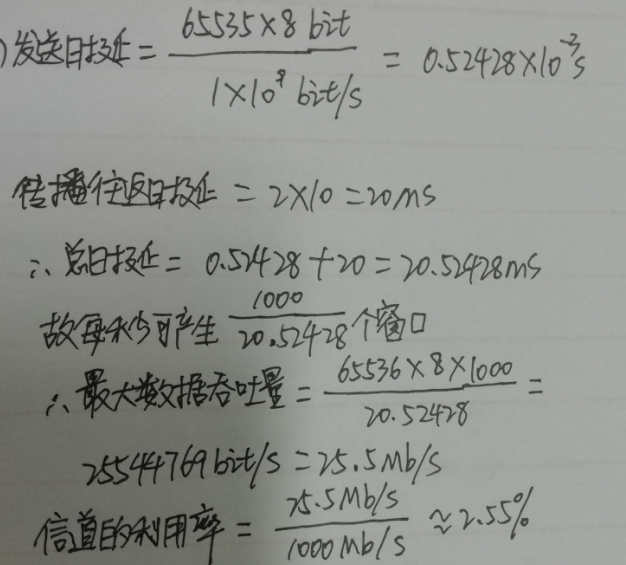 )发送时延 = 65535×8 bit / 1×10⁹ bit/s = 0.52428×10⁻³s
传播往返时延 = 2×10 = 20ms
∴ 总时延 = 0.52428+20 = 20.52428ms
故每秒可产生 1000 / 20.52428 个窗口
∴ 最大数据吞吐量 = 65536×8×1000 / 20.52428 =
25544769 bit/s = 25.5Mb/s
信道的利用率 = 25.5Mb/s / 1000Mb/s ≈ 2.55%